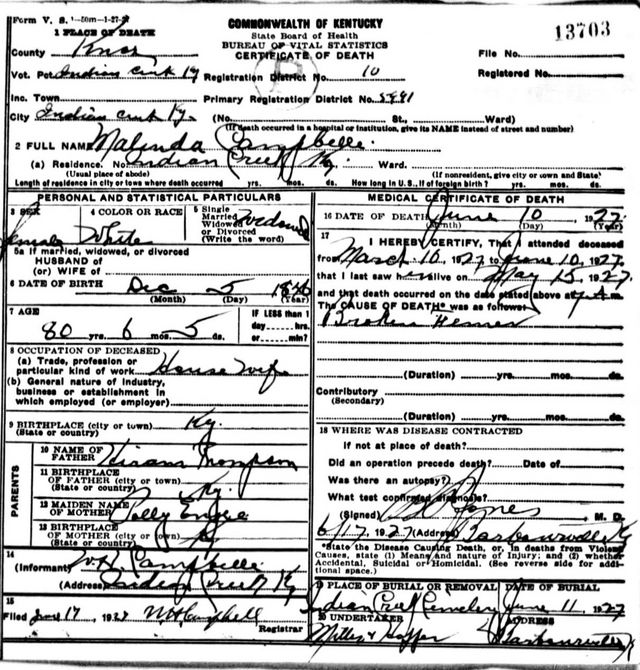 Form V. S. 1-50m-1-27-27
COMMONWEALTH OF KENTUCKY
State Board of Health
BUREAU OF VITAL STATISTICS
CERTIFICATE OF DEATH
13703
1 PLACE OF DEATH
County Knox
File No.
Vot. Pct. Indian Creek Ky
Registration District No. 10
Registered No.
Inc. Town
Primary Registration District No. 5881
City Indian Creek Ky. (No. St., Ward)
(If death occurred in a hospital or institution, give its NAME instead of street and number)
2 FULL NAME Malinda Campbelle
(a) Residence. No. Indian Creek Ky. Ward.
(Usual place of abode) (If nonresident, give city or town and State)
Length of residence in city or town where death occurred yrs. mos. ds. How long in U. S., if of foreign birth? yrs. mos. ds.
PERSONAL AND STATISTICAL PARTICULARS
3 SEX
4 COLOR OR RACE
5 Single
Married
Widowed
or Divorced
(Write the word)
Female White Widowed
5a If married, widowed, or divorced
HUSBAND of
(or) WIFE of
6 DATE OF BIRTH Dec 5 1846
(Month) (Day) (Year)
7 AGE
80 yrs. 6 mos. 5 ds.
IF LESS than 1
day----hrs.
or-----min.?
8 OCCUPATION OF DECEASED
(a) Trade, profession or
particular kind of work House wife
(b) General nature of industry,
business or establishment in
which employed (or employer)
9 BIRTHPLACE (city or town) Ky.
(State or country)
PARENTS
10 NAME OF
FATHER Hiram Thompson
11 BIRTHPLACE
OF FATHER (city or town)
(State or country) Ky.
12 MAIDEN NAME
OF MOTHER Polly Engle
13 BIRTHPLACE
OF MOTHER (city or town)
(State or country) Ky
14
(Informant) W.H. Campbelle
(Address) Indian Creek Ky
15
Filed 17 1927 W H Campbell
Registrar
MEDICAL CERTIFICATE OF DEATH
16 DATE OF DEATH June 10, 1927.
(Month) (Day) (Year)
17
I HEREBY CERTIFY, That I attended deceased
from March 16, 1927 to June 10, 1927.
that I last saw her alive on May 15, 1927.
and that death occurred on the date stated above at 7 A m.
The CAUSE OF DEATH* was as follows:
Broken
(Duration) yrs. mos. ds.
Contributory
(Secondary)
(Duration) yrs. mos. ds.
18 WHERE WAS DISEASE CONTRACTED
if not at place of death?
Did an operation precede death? Date of
Was there an autopsy?
What test confirmed diagnosis?
(Signed) Jones M. D.
6/17, 1927 (Address) Barbourville Ky
*State the Disease Causing Death, or, in deaths from Violent
Causes, state (1) Means and nature of Injury; and (2) whether
Accidental, Suicidal or Homicidal. (See reverse side for addi-
tional space.)
19 PLACE OF BURIAL OR REMOVAL
Indian Creek Cemetery
DATE OF BURIAL
June 11, 1927
20 UNDERTAKER
Miller &
ADDRESS
Barbourville K